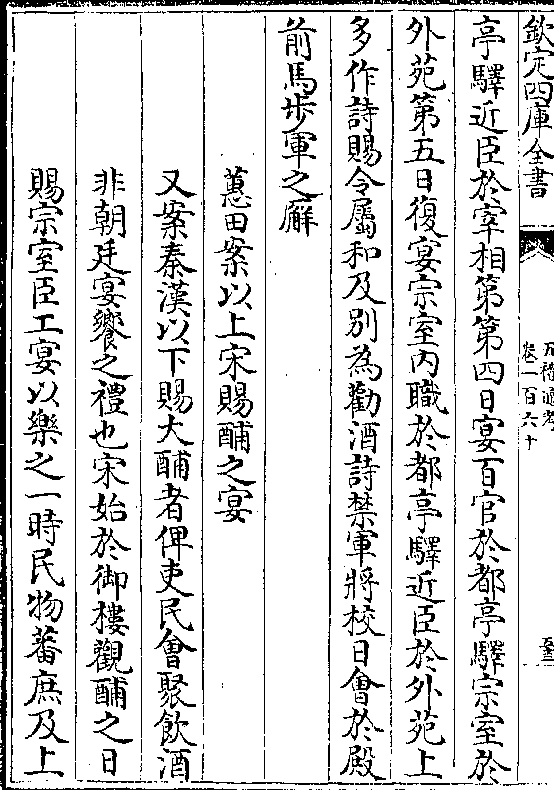 欽定四庫全書
五禮通考
卷一百六十
亭驛近臣於宰相第第四日宴百官於都亭驛宗室於
外苑第五日復宴宗室内職於都亭驛近臣於外苑上
多作詩賜令屬和及別為勸酒詩禁軍將校日會於殿
前馬步軍之廨
蕙田案以上宋賜酺之宴
又案秦漢以下賜大酺者俾吏民會聚飲酒
非朝廷宴饗之禮也宋始於御樓觀酺之日
賜宗室臣工宴以樂之一時民物蕃庶及上